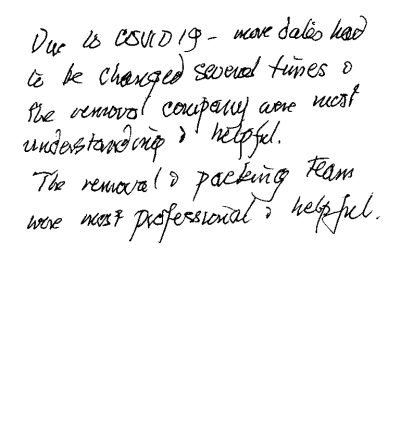 Due to COVID 19 - move dates had
to be changed several times &
the removal company were most
understanding & helpful.
The removal & packing team
were most professional & helpful.